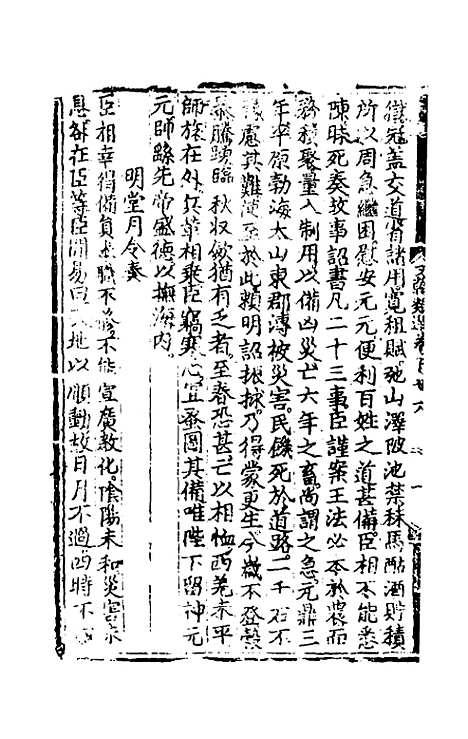 獄冠盖交道省諸用寬租賦弛山澤陂池禁秣馬酤酒貯積
所以周急繼困慰安元元便利百姓之道甚備臣相不能悉
陳昧死奏故事詔書凡二十三事臣謹案王法必本於農而
務積聚量入制用以備凶災亡六年之畜尚謂之急元鼎三
年平原勃海太山東郡溥被災害民餓死於道路二千石不
慮其難使至於此賴明詔振捄乃得蒙更生今歲不登穀
暴騰踴臨秋收斂猶有乏者至春恐甚亡以相恤西羌未平
師旅在外兵革相乘臣竊寒心宜蚤圖其備唯陛下留神元
元帥繇先帝盛德以撫海内
明堂月令奏
臣相幸得備員奉職不修不能宣廣教化陰陽未和災害未
息咎在臣等臣聞易曰天地以順動故日月不過四時不
文翰類選卷百
一